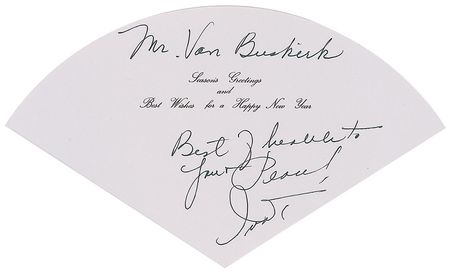 Mr. Van Buskirk
Season's Greetings
and
Best Wishes for a Happy New Year
Best health to